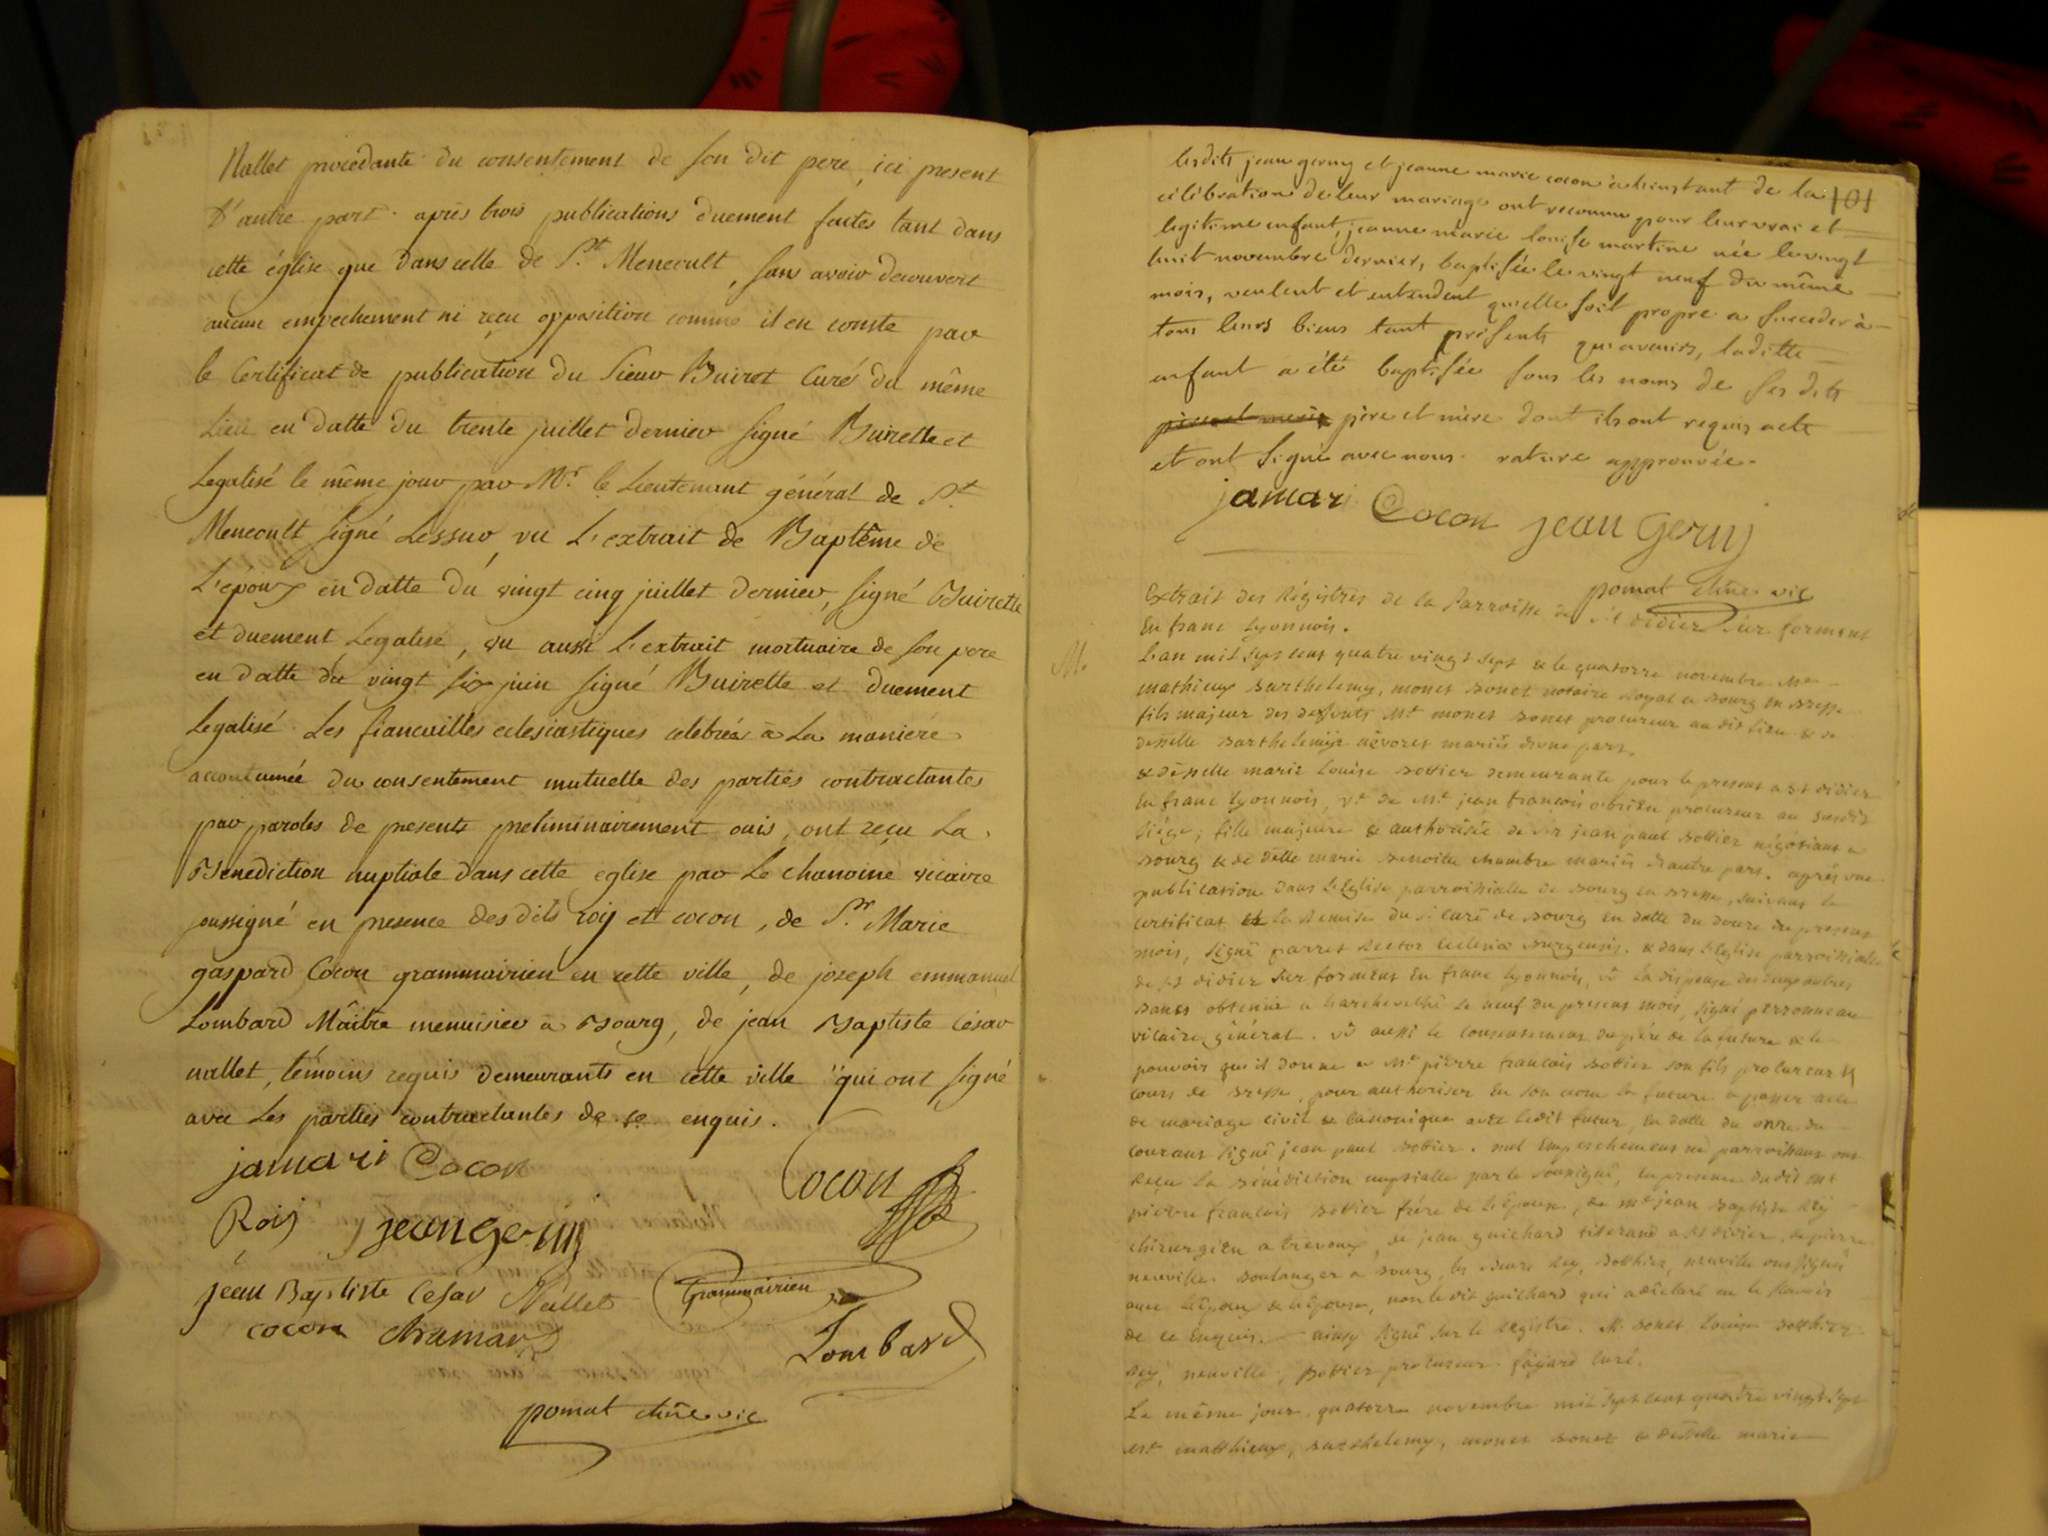 Nallet procedante du consentement de son dit pere, ici present
d'autre part. après trois publications duement faites tant dans
cette église que dans celle de St. Menecoult, sans avoir decouvert
aucun empechement ni reçu opposition comme il en conste par
le Certificat de publication du Sieur Buiret Curé du même
Lieu en datte du trente juillet dernier signé Buirette et
Legalisé le même jour par Mr. le Lieutenant général de St.
Menecoult signé Lessur, vu L'extrait de Baptême de
L'époux en datte du vingt cinq juillet dernier, signé Buirette
et duement Legalisé, vu aussi L'extrait mortuaire de son pere
en datte du vingt six juin signé Buirette et duement
Legalisé. Les fiancailles eclesiastiques celebrées à La maniere
accoutumée du consentement mutuelle des parties contractantes
par paroles de presents preliminairement ouis, ont reçu La
Benediction nuptiale dans cette eglise par Le chanoine vicaire
soussigné en presence des dits roij et cocon, de Sr. Marie
gaspard Cocon grammairien en cette ville, de joseph emmanuel
Lombard Maître menuisier à Bourg, de jean Baptiste César
nallet, témoins requis demeurants en cette ville qui ont signé
avec Les parties contractantes de ce enquis.
jamari Cocon Cocon
Roij jean gerij
jean Baptiste Cesar Nallet Grammairien
cocon chamar Lombard
pomat chne vic
101
lesdits jean gerny et jeanne marie cocon à l'instant de la
célébration de leur mariage ont reconnu pour leur vrai et
legitime enfant, jeanne marie louise martine née le vingt
huit novembre dernier, baptisée le vingt neuf du même
mois, veulent et entendent qu'elle soit propre a succeder à
tous leurs biens tant présents qu'avenirs, laditte
enfant a été baptisée sous les noms de ses dits
père et mère dont ils ont requis acte
et ont signé avec nous. rature approuvée.
jamari Cocon jean Gerij
pomat chne vic
Extrait des Régistres de la Parroisse de St didier sur formens
En franc Lyonnois.
M. L'an mil sept cent quatre vingt sept & le quatorze novembre Me
mathieux Barthelemy, monet Bonet notaire Royal a Bourg en Bresse
fils majeur des deffunts Mr monet Bonet procureur au dit Lieu & de
demelle Barthelemije mariés d'une part,
& demelle marie Louise Bottier demeurante pour le present a St didier
En franc Lyonnois, ve de Mr jean francois obrien procureur au susdit
siége, fille majeure & authorisée de sr jean paul Bottier négotiant a
Bourg & de delle marie Benoite chambre mariés d'autre part. après une
publication dans L'Eglise parroissialle de Bourg en Bresse, suivant le
certificat & la Remise du sr curé de Bourg en datte du douze du present
mois, signé parret Rector Ecclesiæ Burgensis. & dans L'Eglise parroissialle
de St didier sur formens En franc Lyonnois, vû la dispense des deux autres
Bancs obtenue a L'archeveché le neuf du present mois, signé perronneau
vicaire général. vû aussi le consentement du père de la future & le
pouvoir qu'il donne a Mr pierre francois Bottier son fils procureur es
cours de Bresse, pour authoriser en son nom la future a passer acte
de mariage civil & canonique avec ledit futur, en datte du onze du
courant signé jean paul Bottier. nul Empechement ne parroissant ont
Reçu La Bénédiction nuptialle par le soussigné, en presence dudit mr
pierre francois Bottier frère de L'épouse, de mr jean Baptiste Rey
chirurgien a trevoux, de jean guichard tisserand a St didier, de pierre
neuville Boulanger a Bourg, les sieurs Rey, Botthier, neuville ont signé
avec L'époux & L'épouse, non le dit guichard qui a déclaré ne le sçavoir
de ce enquis. ainsy signé sur le registre. M. Bonet Louise Botthier
Rey, neuville, Bottier procureur. fayard curé.
Le même jour quatorze novembre mil sept cent quatre vingt sept
est matthieux, Barthelemy, monet Bonet & demelle marie